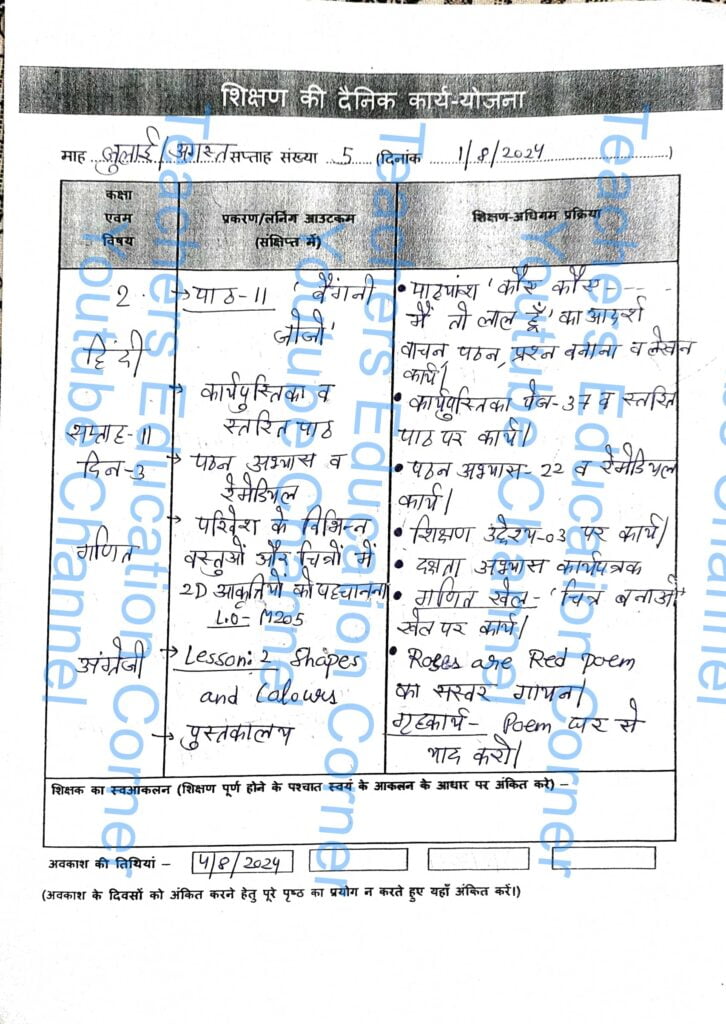 शिक्षण की दैनिक कार्य-योजना
माह जुलाई/अगस्त सप्ताह संख्या 5 (दिनांक 1/8/2024)
कक्षा
एवम
विषय
प्रकरण/लर्निंग आउटकम
(संक्षिप्त में)
शिक्षण-अधिगम प्रक्रिया
2
हिंदी
सप्ताह-11
दिन-3
→ पाठ-11 'बैंगनी
जोजो'
→ कार्यपुस्तिका व
स्तरित पाठ
→ पठन अभ्यास व
रेमेडियल
• पाठ्यांश 'कौए कौए-----
मैं तो लाल हूँ' का आदर्श
वाचन, पठन, प्रश्न बनाना व लेखन
कार्य|
• कार्यपुस्तिका पेज-37 व स्तरित
पाठ पर कार्य|
• पठन अभ्यास-22 व रेमेडियल
कार्य|
गणित
→ परिवेश के विभिन्न
वस्तुओं और चित्रों में
2D आकृतियों को पहचानना
L.O- M205
• शिक्षण उद्देश्य-03 पर कार्य|
• दक्षता अभ्यास कार्यपत्रक
• गणित खेल- 'चित्र बनाओ'
खेल पर कार्य|
अंग्रेजी
→ Lesson: 2 Shapes
and Colours
→ पुस्तकालय
• Roses are Red poem
का सस्वर गायन|
गृहकार्य- Poem घर से
याद करो|
शिक्षक का स्वआकलन (शिक्षण पूर्ण होने के पश्चात स्वयं के आकलन के आधार पर अंकित करे) –
अवकाश की तिथियां – 4/8/2024
(अवकाश के दिवसों को अंकित करने हेतु पूरे पृष्ठ का प्रयोग न करते हुए यहाँ अंकित करें।)
Teachers Education Corner
Youtube Channel
Teachers Education Corner
Youtube Channel
Teachers Education Corner
Youtube Channel